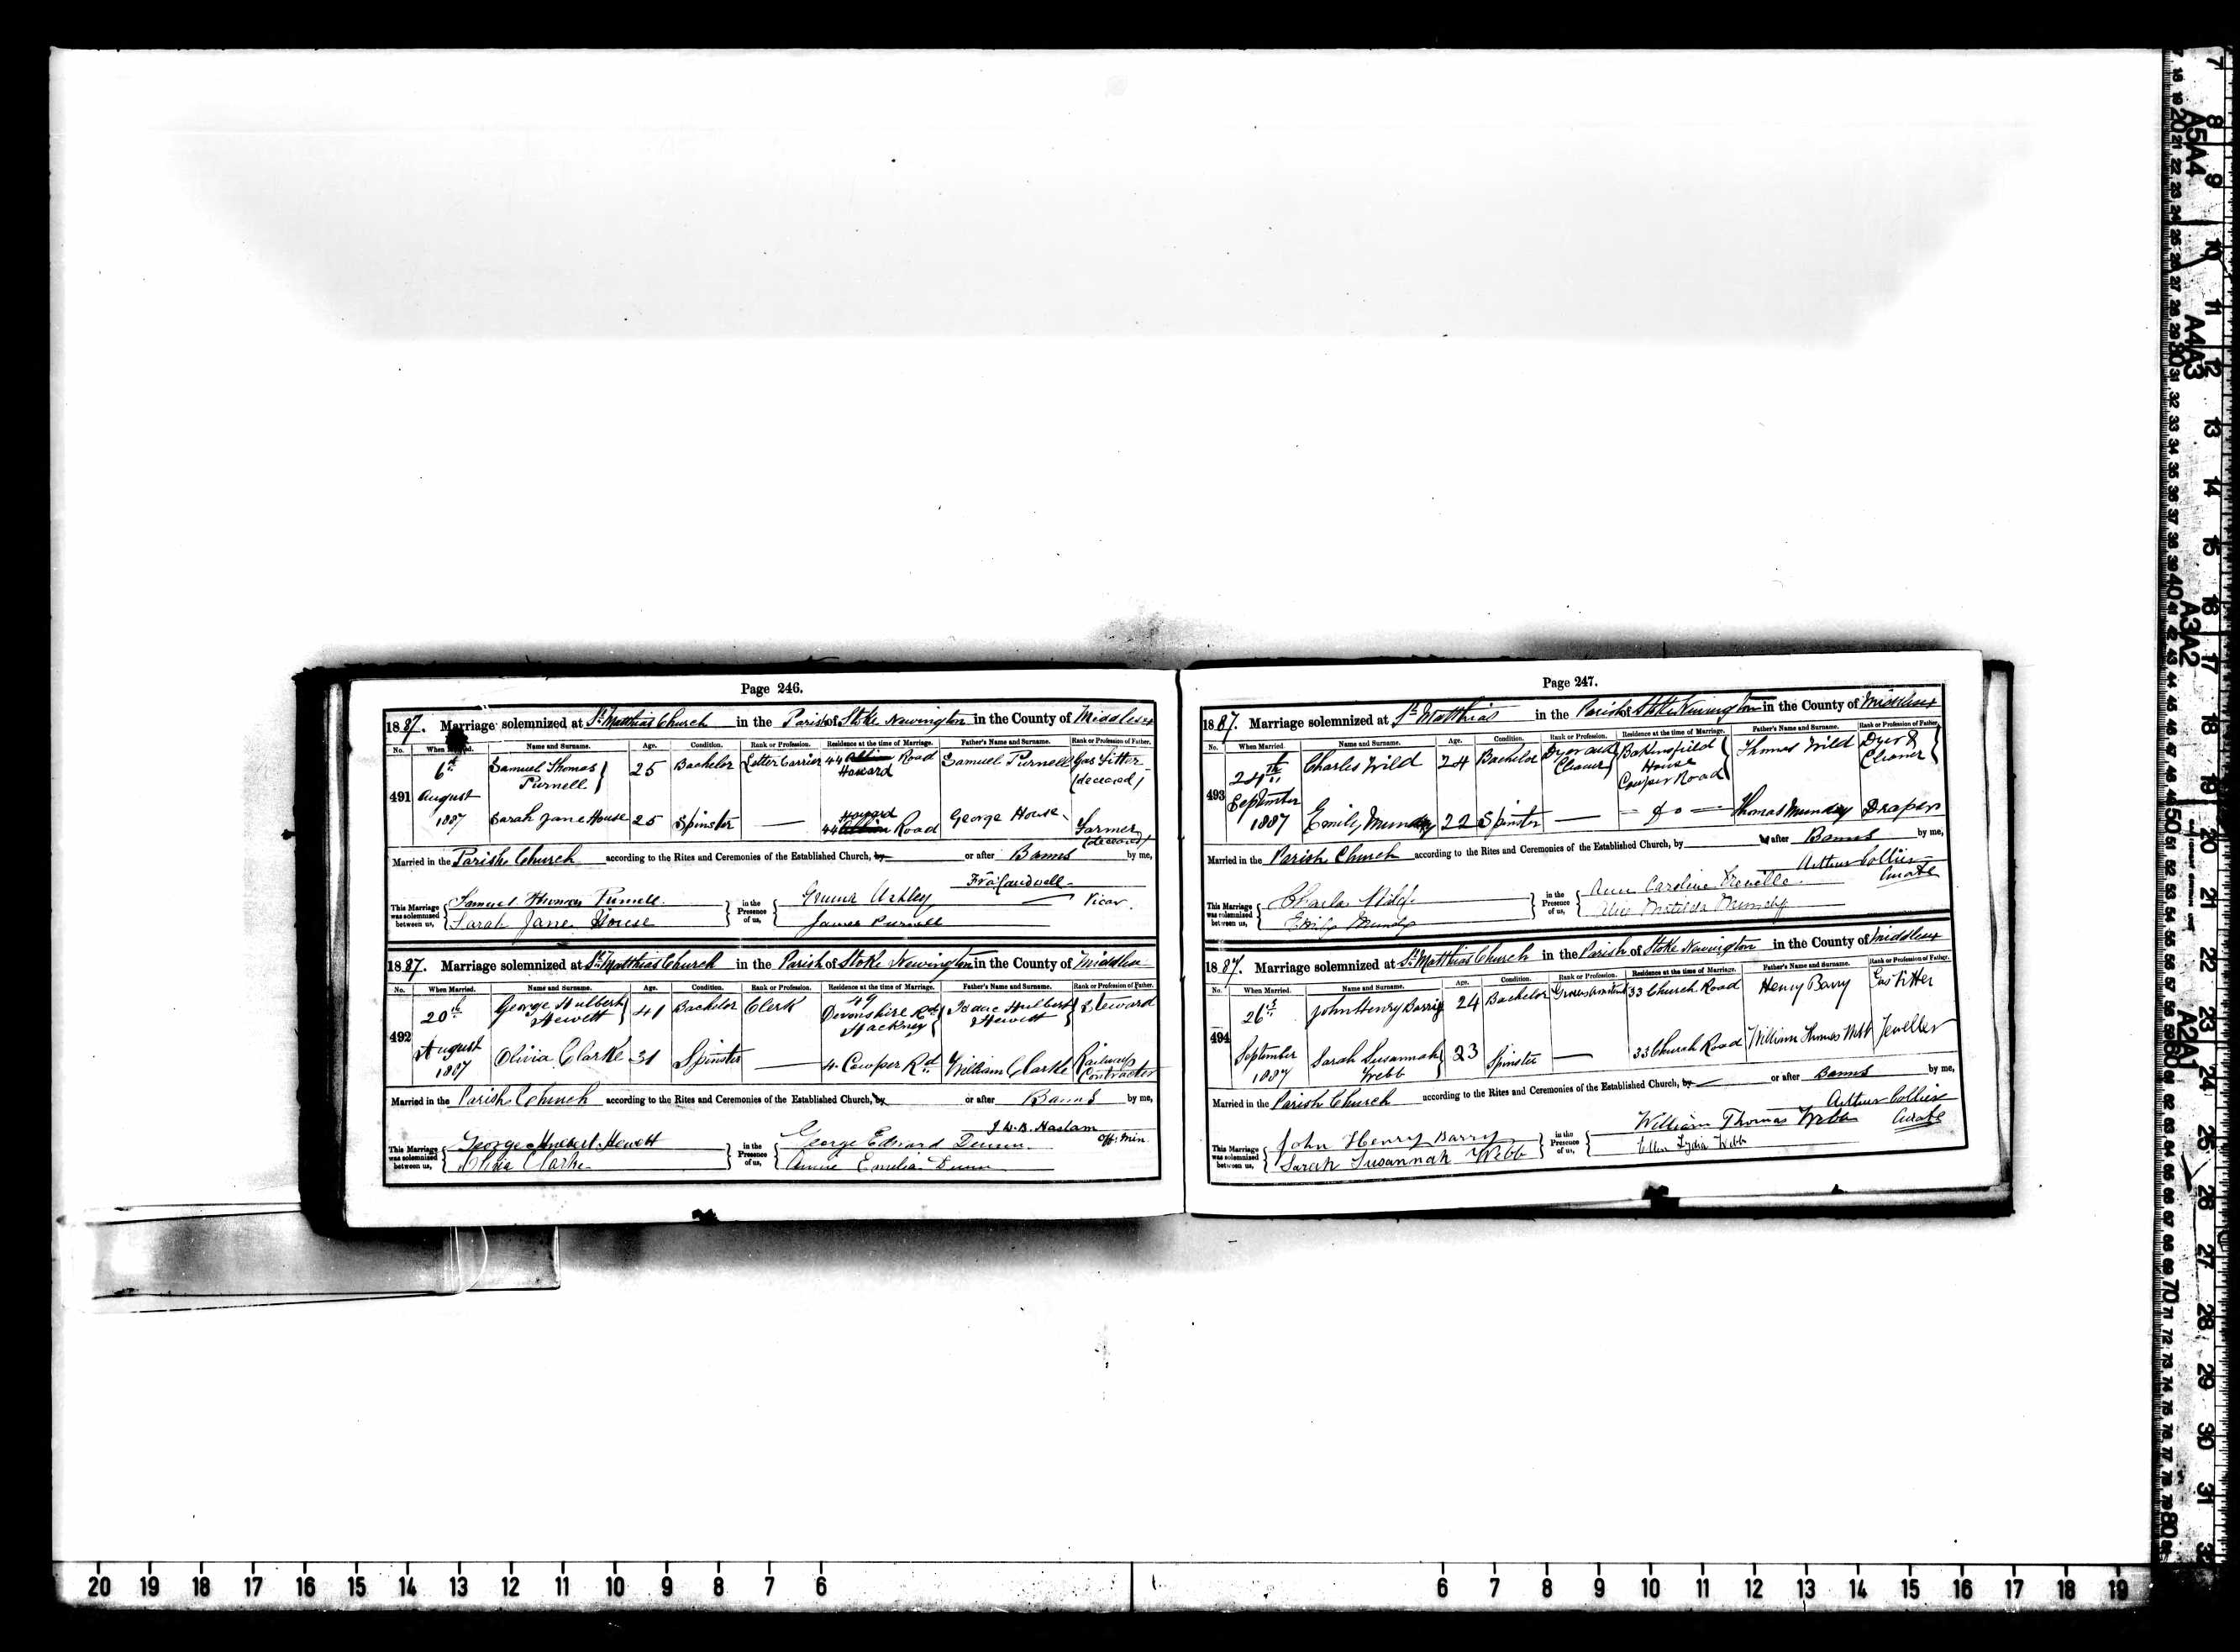 Page 246.
1887. Marriage solemnized at St Matthias Church in the Parish of Stoke Newington in the County of Middlesex
No. When Married. Name and Surname. Age. Condition. Rank or Profession. Residence at the time of Marriage. Father's Name and Surname. Rank or Profession of Father.
491 6th August 1887 Samuel Thomas Purnell 25 Bachelor Letter Carrier 44 Albion Howard Road Samuel Purnell Gas Fitter (deceased)
Sarah Jane House 25 Spinster — 44 Howard Albion Road George House Farmer (deceased)
Married in the Parish Church according to the Rites and Ceremonies of the Established Church, by or after Banns by me,
Vicar.
This Marriage was solemnized between us, Samuel Thomas Purnell Sarah Jane House in the Presence of us, James Purnell
1887. Marriage solemnized at St Matthias Church in the Parish of Stoke Newington in the County of Middlesex
No. When Married. Name and Surname. Age. Condition. Rank or Profession. Residence at the time of Marriage. Father's Name and Surname. Rank or Profession of Father.
492 20th August 1887 George Hulbert Hewett 41 Bachelor Clerk 49 Devonshire Rd Hackney Isaac Hulbert Hewett Steward
Olivia Clarke 31 Spinster — 4 Cowper Rd William Clarke Railway Contractor
Married in the Parish Church according to the Rites and Ceremonies of the Established Church, by or after Banns by me,
J. W. B. Haslam Off. Min.
This Marriage was solemnized between us, George Hulbert Hewett Olivia Clarke in the Presence of us, George Edward Dunn Annie Emilia Dunn
Page 247.
1887. Marriage solemnized at St Matthias in the Parish of Stoke Newington in the County of Middlesex
No. When Married. Name and Surname. Age. Condition. Rank or Profession. Residence at the time of Marriage. Father's Name and Surname. Rank or Profession of Father.
493 24th September 1887 Charles Wild 24 Bachelor Dyer and Cleaner House Cowper Road Thomas Wild Dyer & Cleaner
Emily Munday 22 Spinster — do — Thomas Munday Draper
Married in the Parish Church according to the Rites and Ceremonies of the Established Church, by or after Banns by me,
Arthur Collier Curate
This Marriage was solemnized between us, Charles Wild Emily Munday in the Presence of us, Ann Caroline Alice Matilda Munday
1887. Marriage solemnized at St Matthias Church in the Parish of Stoke Newington in the County of Middlesex
No. When Married. Name and Surname. Age. Condition. Rank or Profession. Residence at the time of Marriage. Father's Name and Surname. Rank or Profession of Father.
494 26th September 1887 John Henry Barry 24 Bachelor Grocers Assistant 33 Church Road Henry Barry Gas Fitter
Sarah Susannah Webb 23 Spinster — 33 Church Road William Thomas Webb Jeweller
Married in the Parish Church according to the Rites and Ceremonies of the Established Church, by or after Banns by me,
Arthur Collier Curate
This Marriage was solemnized between us, John Henry Barry Sarah Susannah Webb in the Presence of us, William Thomas Webb Ellen Lydia Webb
20 19 18 17 16 15 14 13 12 11 10 9 8 7 6 6 7 8 9 10 11 12 13 14 15 16 17 18 19
A5 A4 A4 A3 A3 A2 A2 A1
7 8 9 10 11 12 13 14 15 16 17 18 19 20 21 22 23 24 25 26 27 28 29 30 31